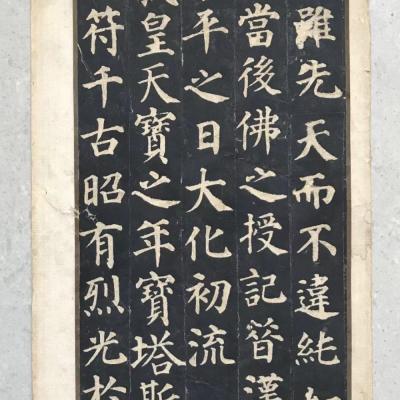 雖先天而不違純
當後佛之授記昔漢
平之日大化初流
皇天寶之年寶塔斯
符千古昭有烈光於